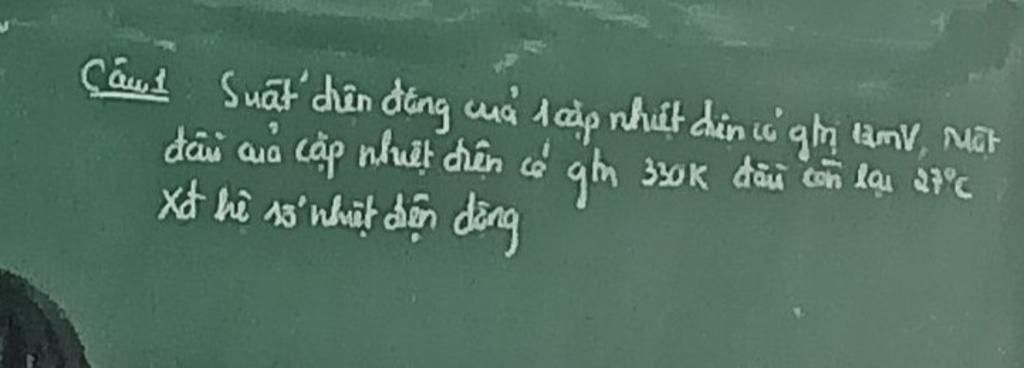 Câu 1 Suất điện động của 1 cặp nhiệt điện có gtrị 12mV, Một
đầu của cặp nhiệt điện có gtrị 330K đầu còn lại 27°C
Xđ hệ số nhiệt điện động